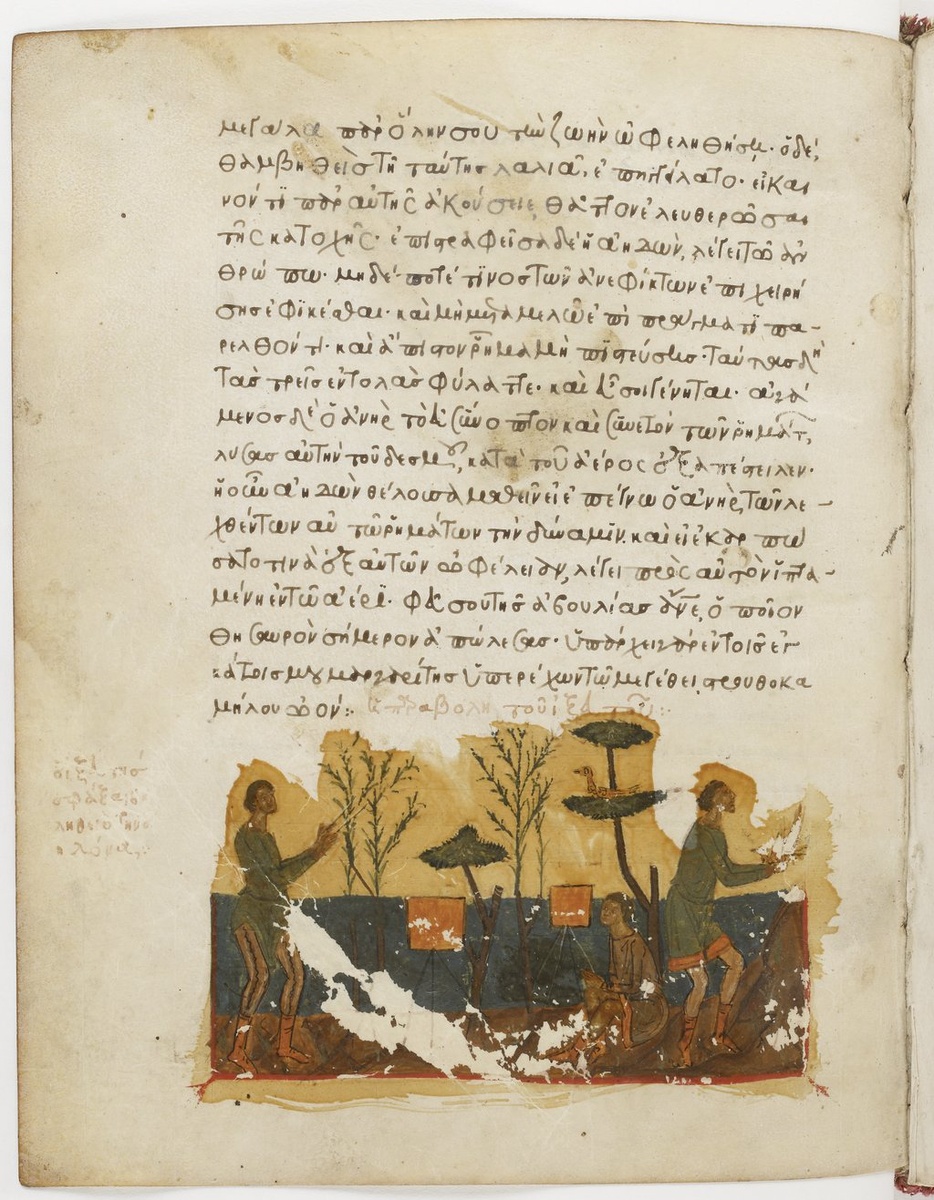 μεγάλα παρ ὅλην σου τὴν ζωὴν ὠφεληθήσῃ· ὁ δὲ,
θαμβηθεὶς τῇ ταύτης λαλιᾷ, ἐπηγγείλατο· εἰ και
νόν τι παρ αὐτῆς ἀκούσειε, θᾶττον ἐλευθερῶσαι
τῆς κατοχῆς· ἐπιστραφεῖσα δὲ ἡ ἀηδὼν, λέγει τῷ ἀν
θρώπω· μηδέποτέ τινος τῶν ἀνεφίκτων ἐπιχειρή
σης ἐφικέσθαι· καὶ μὴ μεταμελοῦ ἐπὶ πράγματι πα-
ρελθόντι· καὶ ἄπιστον ῥῆμα μὴ πιστεύσῃς· ταύτας δὴ
τὰς τρεῖς ἐντολὰς φύλαττε· καὶ εὖ σοι γένηται· ἀγά
μενος δὲ ὁ ἀνὴρ τὸ εὐσύνοπτον καὶ συνετὸν τῶν ῥημάτ,
λύσας αὐτὴν τοῦ δεσμοῦ, κατὰ τοῦ ἀέρος ἐξαπέστειλεν·
ἡ οὖν ἀηδὼν θέλουσα μαθεῖν εἰ ἐπέγνω ὁ ἀνὴρ, τῶν λε-
χθέντων αὐτῷ ῥημάτων τὴν δύναμιν, καὶ εἰ ἐκαρπώ
σατό τινα ἐξ αὐτῶν ὠφέλειαν, λέγει πρὸς αὐτὸν ἱπτα-
μένη ἐν τῷ ἀέρι· φεῦ σου τῆς ἀβουλίας ἄνε, ὁποῖον
θησαυρὸν σήμερον ἀπώλεσας· ὑπάρχει γὰρ ἐν τοῖς ἐγ
κάτοις μου μαργαρίτης ὑπερέχων τῷ μεγέθει, στρουθοκα
μήλου ὠόν: παραβολὴ τοῦ ἰξευτοῦ: